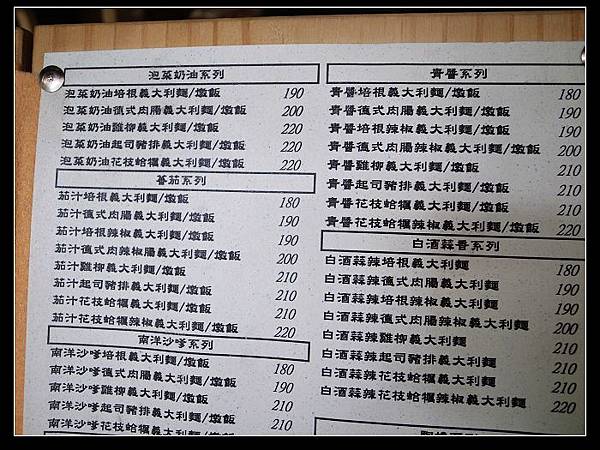 泡菜奶油系列
泡菜奶油培根義大利麵/燉飯 190
泡菜奶油德式肉腸義大利麵/燉飯 200
泡菜奶油雞柳義大利麵/燉飯 220
泡菜奶油起司豬排義大利麵/燉飯 220
泡菜奶油花枝蛤蠣義大利麵/燉飯 220
蕃茄系列
茄汁培根義大利麵/燉飯 180
茄汁德式肉腸義大利麵/燉飯 190
茄汁培根辣椒義大利麵/燉飯 190
茄汁德式肉腸辣椒義大利麵/燉飯 200
茄汁雞柳義大利麵/燉飯 210
茄汁起司豬排義大利麵/燉飯 210
茄汁花枝蛤蠣義大利麵/燉飯 210
茄汁花枝蛤蠣辣椒義大利麵/燉飯 220
南洋沙嗲系列
南洋沙嗲培根義大利麵/燉飯 180
南洋沙嗲德式肉腸義大利麵/燉飯 190
南洋沙嗲雞柳義大利麵/燉飯 210
南洋沙嗲起司豬排義大利麵/燉飯 210
南洋沙嗲花枝蛤蠣義大利麵/燉飯 210
青醬系列
青醬培根義大利麵/燉飯 180
青醬德式肉腸義大利麵/燉飯 190
青醬培根辣椒義大利麵/燉飯 190
青醬德式肉腸辣椒義大利麵/燉飯 200
青醬雞柳義大利麵/燉飯 210
青醬起司豬排義大利麵/燉飯 210
青醬花枝蛤蠣義大利麵/燉飯 210
青醬花枝蛤蠣辣椒義大利麵/燉飯 220
白酒蒜香系列
白酒蒜辣培根義大利麵 180
白酒蒜辣德式肉腸義大利麵 190
白酒蒜辣培根辣椒義大利麵 190
白酒蒜辣德式肉腸辣椒義大利麵 200
白酒蒜辣雞柳義大利麵 210
白酒蒜辣起司豬排義大利麵 210
白酒蒜辣花枝蛤蠣義大利麵 210
白酒蒜辣花枝蛤蠣辣椒義大利麵 220